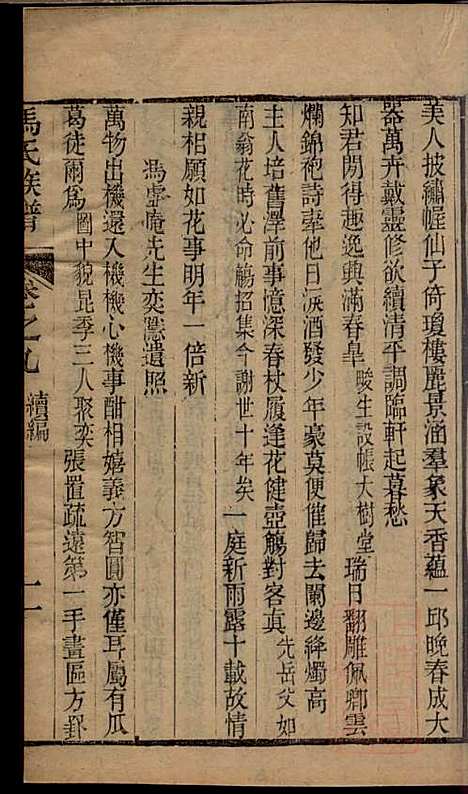 美人披繡幄仙子倚瓊樓麗景涵羣象天香蘊一邱晚春成大
器萬卉戴靈修欲續清平調臨軒起暮愁
知君閒得趣逸興滿春皐畯生設帳大樹堂瑞日翻雕佩卿雲
爛錦袍詩牽他日淚酒發少年豪莫便催歸去闌邊絳燭高
主人培舊澤前事憶深春杖履逢花健壺觴對客眞先岳父如
南翁花時必命觴招集今謝世十年矣一庭新雨露十載故情
親相願如花事明年一倍新
馮虛庵先生奕隱遺照
萬物出機還入機機心機事酣相嬉義方智圓亦僅耳屬有瓜
葛徒爾爲圖中貌昆季三人聚奕張置疏遠第一手畫區方罫
馮氏族譜
卷之九
續編
二